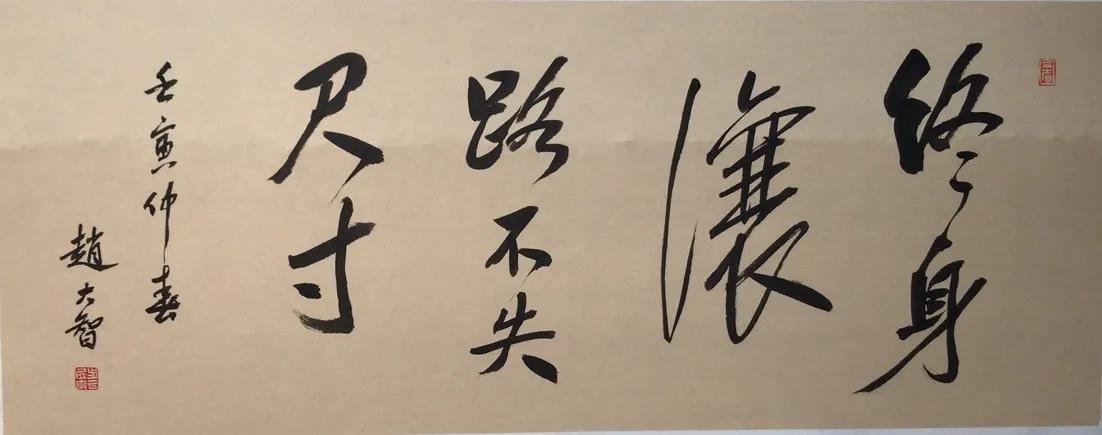 终身
讓
路不失
尺寸
壬寅仲春
趙大智